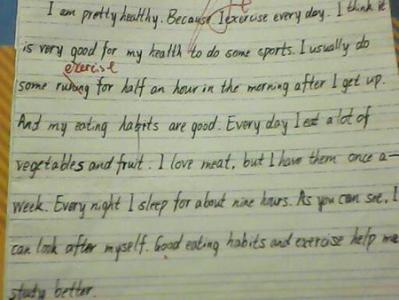 I am pretty healthy. Because I exercise every day. I think it
is very good for my health to do some sports. I usually do
exercise
some runing for half an hour in the morning after I get up.
And my eating habits are good. Every day I eat a lot of
vegetables and fruit. I love meat, but I have them once a-
week. Every night I sleep for about nine hours. As you can see, I
can look after myself. Good eating habits and exercise help me
study better.